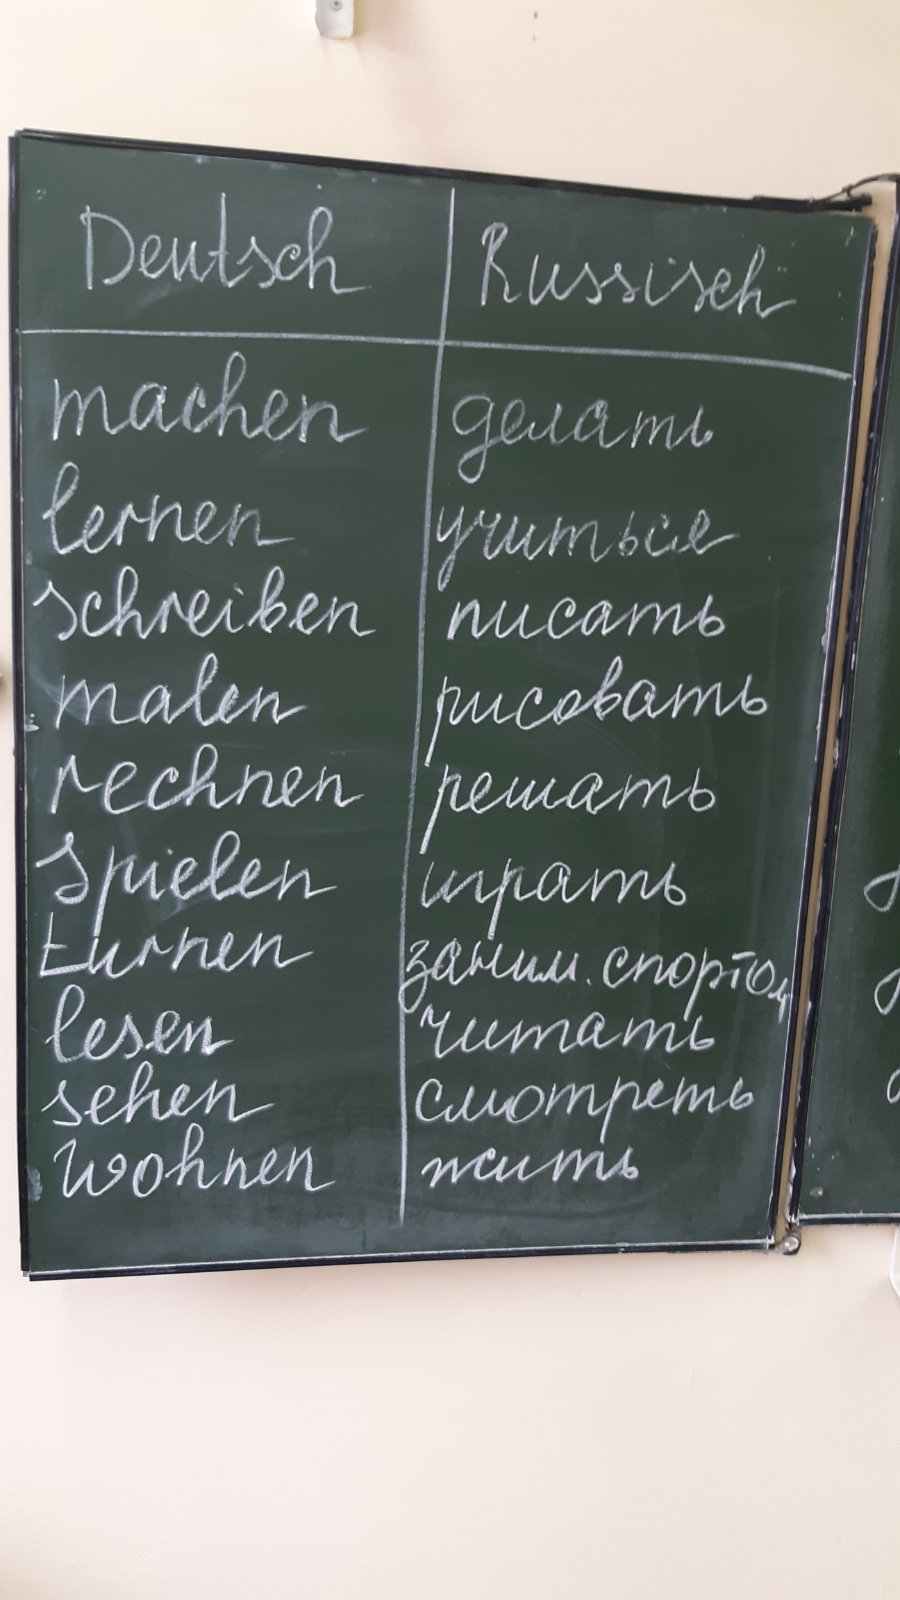 Deutsch Russisch
machen делать
lernen учиться
schreiben писать
malen рисовать
rechnen решать
spielen играть
turnen заним. спортом
lesen читать
sehen смотреть
wohnen жить